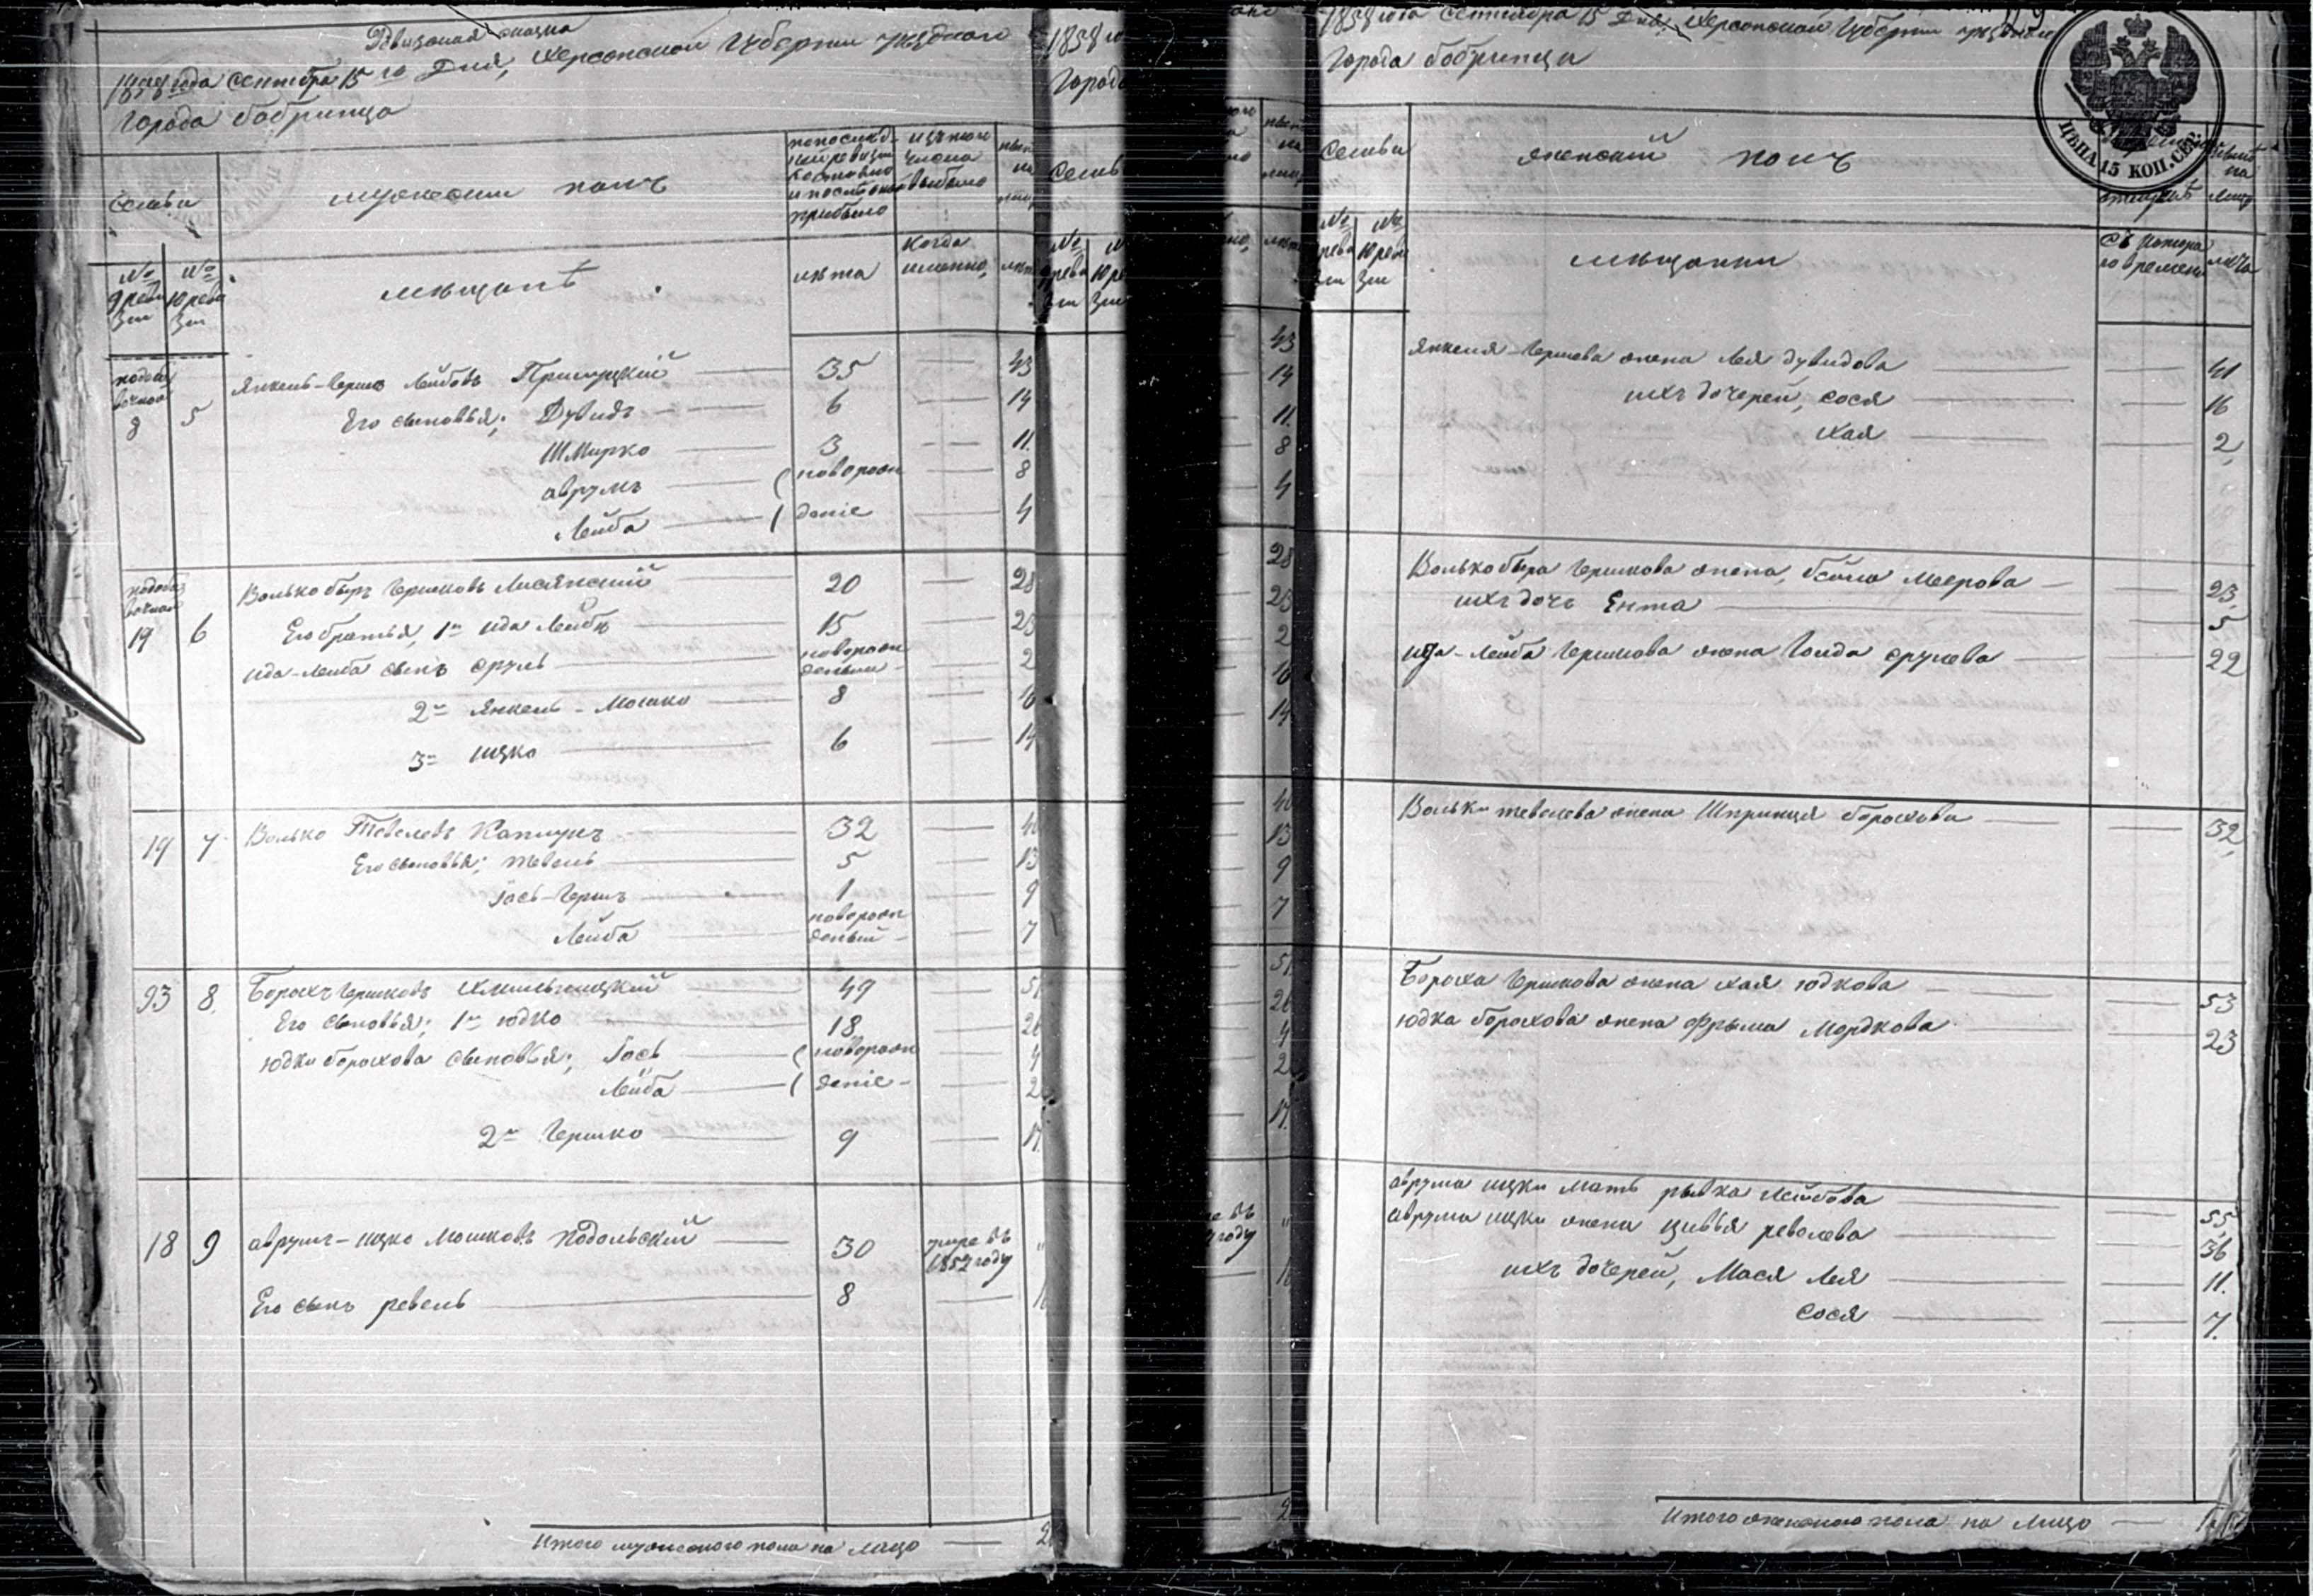 Ревизская сказка
1858 года Сентября 15 го Дня, Херсонской Губернии уездного
Города Бобринца
Семьи
мужеский полъ
по последней ревизии состояло и после того прибыло
изъ того числа выбыло
ныне на лицо
№ 9 ревизии
№ 10 ревизии
мещанъ
лета
когда именно
лета
8 5 Янкель-Гершъ Лейбовъ Прилуцкій 35 43
Его сыновья; Дувидъ 6 14
Шмирко 3 11
аврумъ новорож 8
Лейба дение 4
19 6 Волько быръ Гершковъ Лисянский 20 28
Его братья, 1й ида Лейбъ 15 23
ида-Лейба сынъ сруль новорож денный 2
2й Янкель-Мошко 8 16
3й ицко 6 14
19 7 Волько Тевелевъ Каплунъ 32 40
Его сыновья; тевель 5 13
Іось-Гершъ 1 9
Лейба новорож денный 7
93 8 Борохъ Гершковъ Хмильницкий 49 57
Его сыновья; 1й юдко 18 26
юдки борохова сыновья; Іось новорож 4
Лейба дение 2
2й Гершко 9 17
18 9 аврумъ-ицко Мошковъ Подольский 30 умре въ 1852 году "
Его сынъ ревель 8 16
Итого мужеского пола на лицо
1858 года Сентября 15 Дня, Херсонской Губернии уездного
Города Бобринца
ЦѢНА 15 КОП. СЕР.
Семьи
женский полъ
ныне на лицо
№ 9 ревизии
№ 10 ревизии
мещанки
съ которого времени
лета
Янкеля-Гершева жена Лея Дувидова 41
ихъ дочерей, Сося 16
хая 2
Волько быра Гершкова жена, бейла меерова 23
ихъ дочь Ента 5
ида-Лейба Гершкова жена Голда срулева 22
Вольки тевелева жена Шпринця борохова 32
Бороха Гершкова жена хая юдкова 53
юдка борохова жена фрыма Мордкова 23
аврума ицки мать рывка лейбова 55
аврума ицки жена цывья ревелева 36
ихъ дочерей, Мася Лея 11
Сося 7
Итого женского пола на лицо